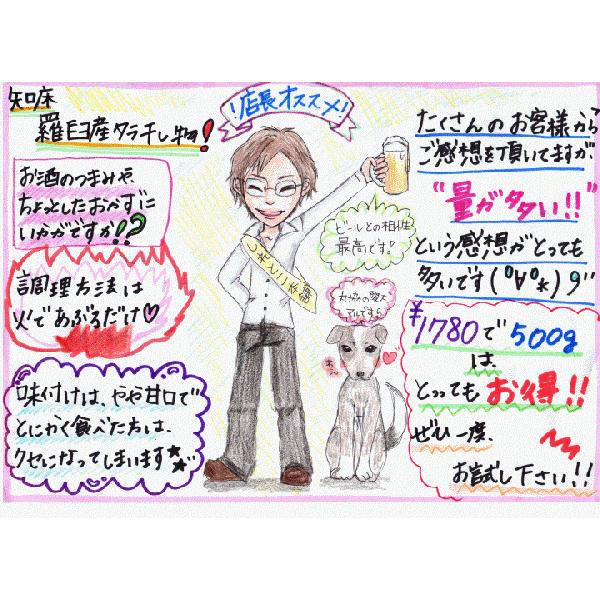 知床
羅臼産タラ干し物!
お酒のつまみや、
ちょっとしたおかずに
いかがですか!?
調理方法は
火であぶるだけ♡
味付けは、やや甘口で
とにかく食べた方は、
クセになってしまいます★★
!店長オススメ!
ビールとの相性
最高です!
たくさんのお客様から
ご感想を頂いてますが、
"量が多い!!"
という感想がとっても
多いです(°∀°*)9"
¥1780で500g
は
とってもお得!!
ぜひ一度、
お試し下さい!!